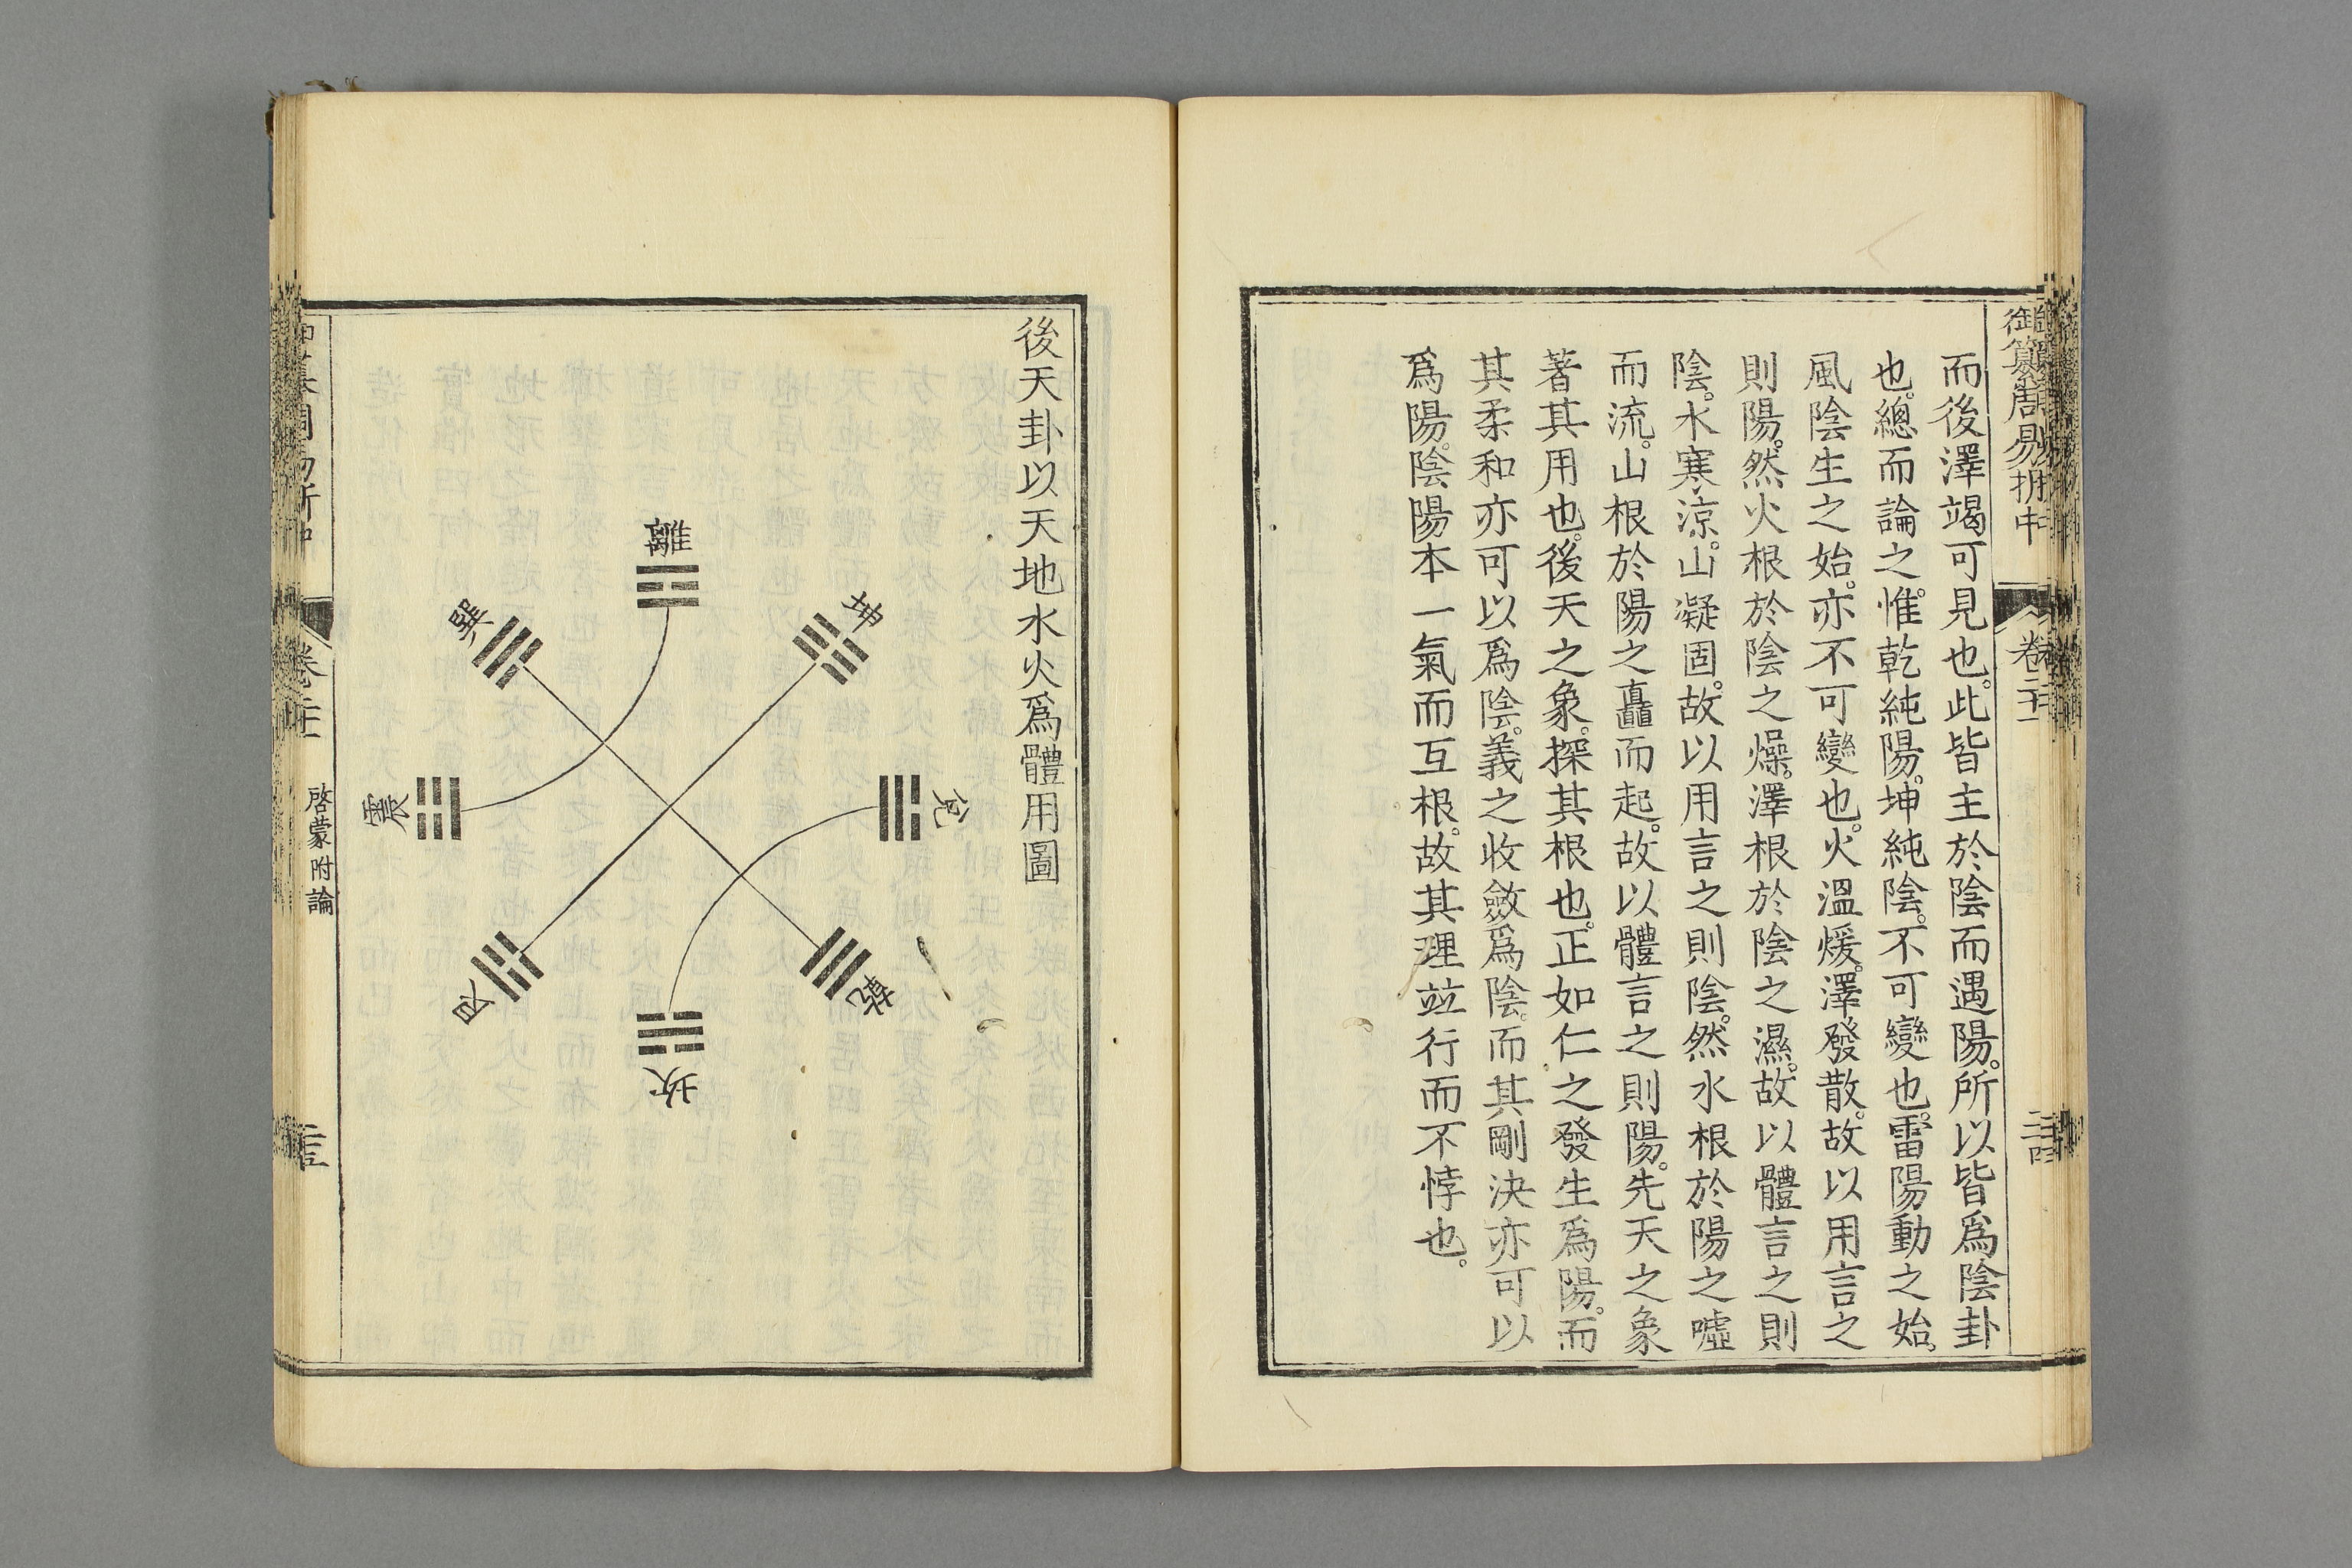 御纂周易折中
卷二十一
二十四
而後澤竭可見也。此皆主於陰而遇陽。所以皆爲陰卦
也。總而論之。惟乾純陽。坤純陰。不可變也。雷陽動之始。
風陰生之始。亦不可變也。火溫煖。澤發散。故以用言之
則陽。然火根於陰之燥。澤根於陰之濕。故以體言之則
陰。水寒涼。山凝固。故以用言之則陰。然水根於陽之噓
而流。山根於陽之矗而起。故以體言之則陽。先天之象
著其用也。後天之象。探其根也。正如仁之發生爲陽。而
其柔和亦可以爲陰。義之收斂爲陰。而其剛決亦可以
爲陽。陰陽本一氣而互根。故其理竝行而不悖也。
後天卦以天地水火爲體用圖
離
坤
兌
乾
坎
艮
震
巽
卷二十一
啓蒙附論
二十五